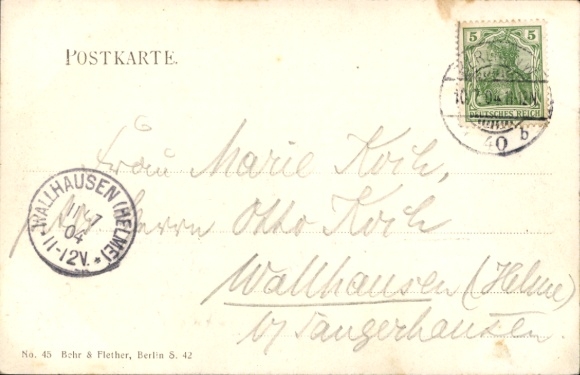 POSTKARTE.
5 5
DEUTSCHES REICH
40 b
Frau Marie Koch,
Herrn Otto Koch
Wallhausen (Helme)
b/ Sangerhausen.
WALLHAUSEN (HELME)
11 7
04
11-12V.
No. 45 Behr & Flether, Berlin S. 42